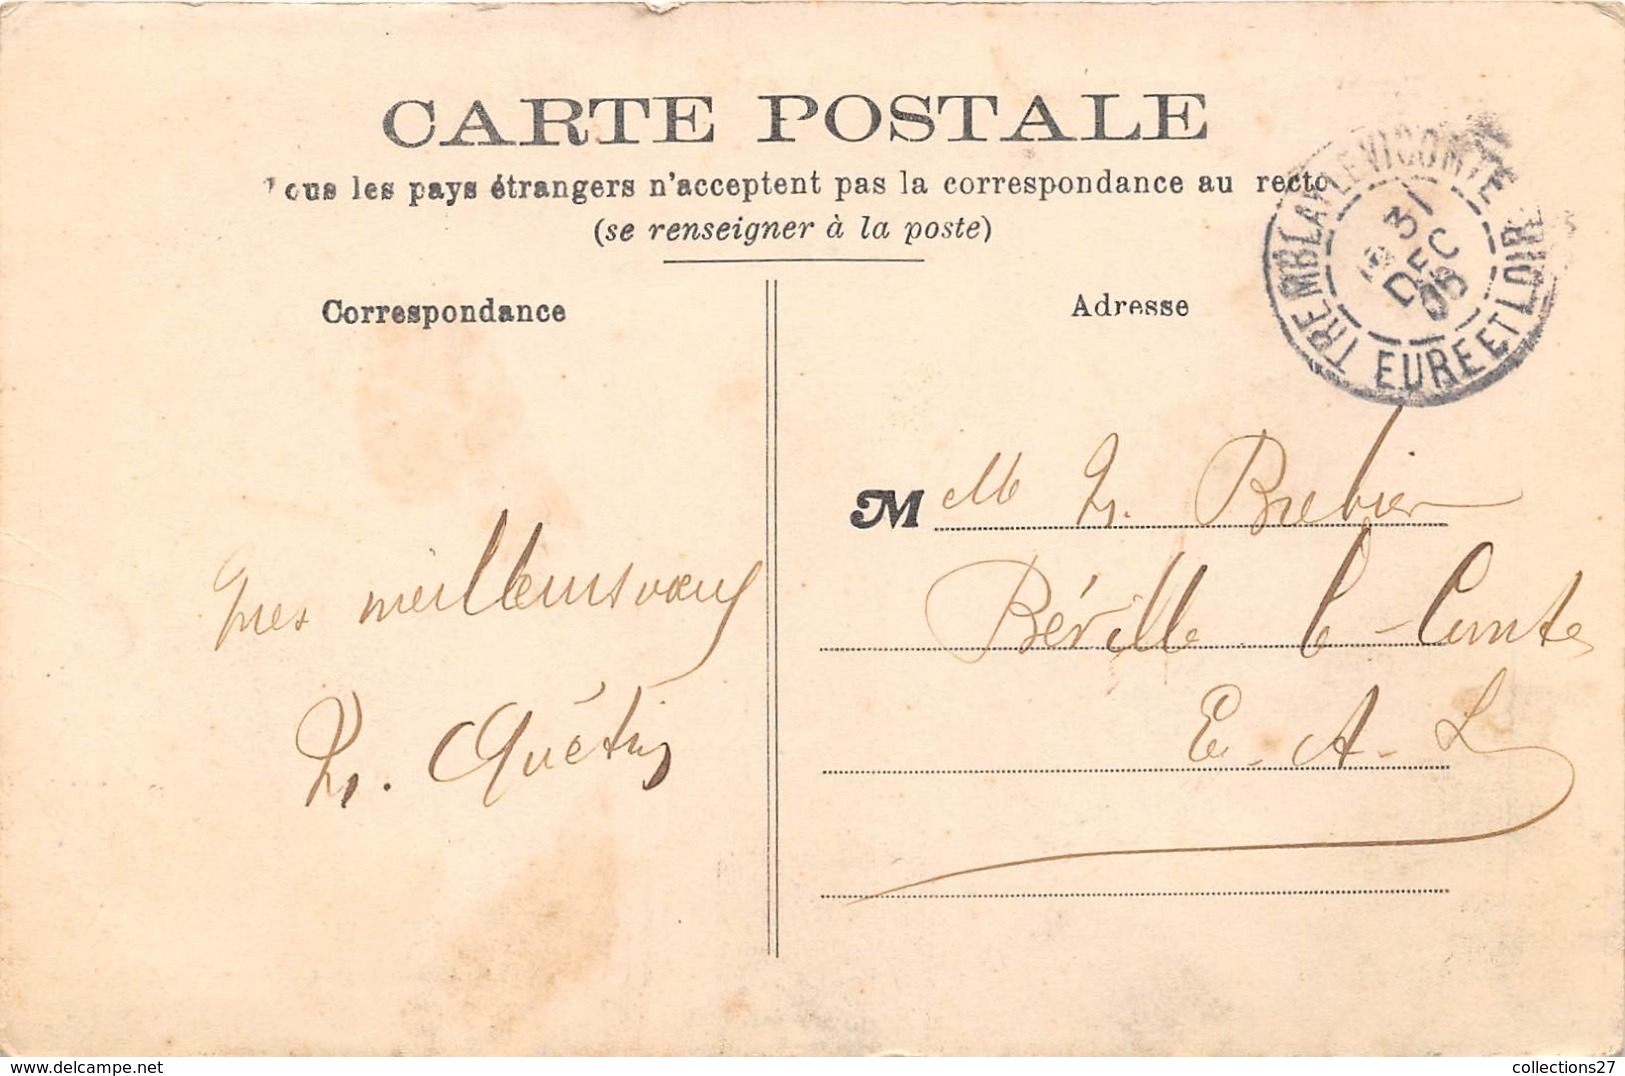 CARTE POSTALE
Tous les pays étrangers n'acceptent pas la correspondance au recto
(se renseigner à la poste)
Correspondance
Adresse
TREMBLAY LE VICOMTE
31
DEC
EURE ET LOIR
M elle M. Brebier
Béville le-Comte
E. A. L
mes meilleurs vœux
M. Quétin
collections27